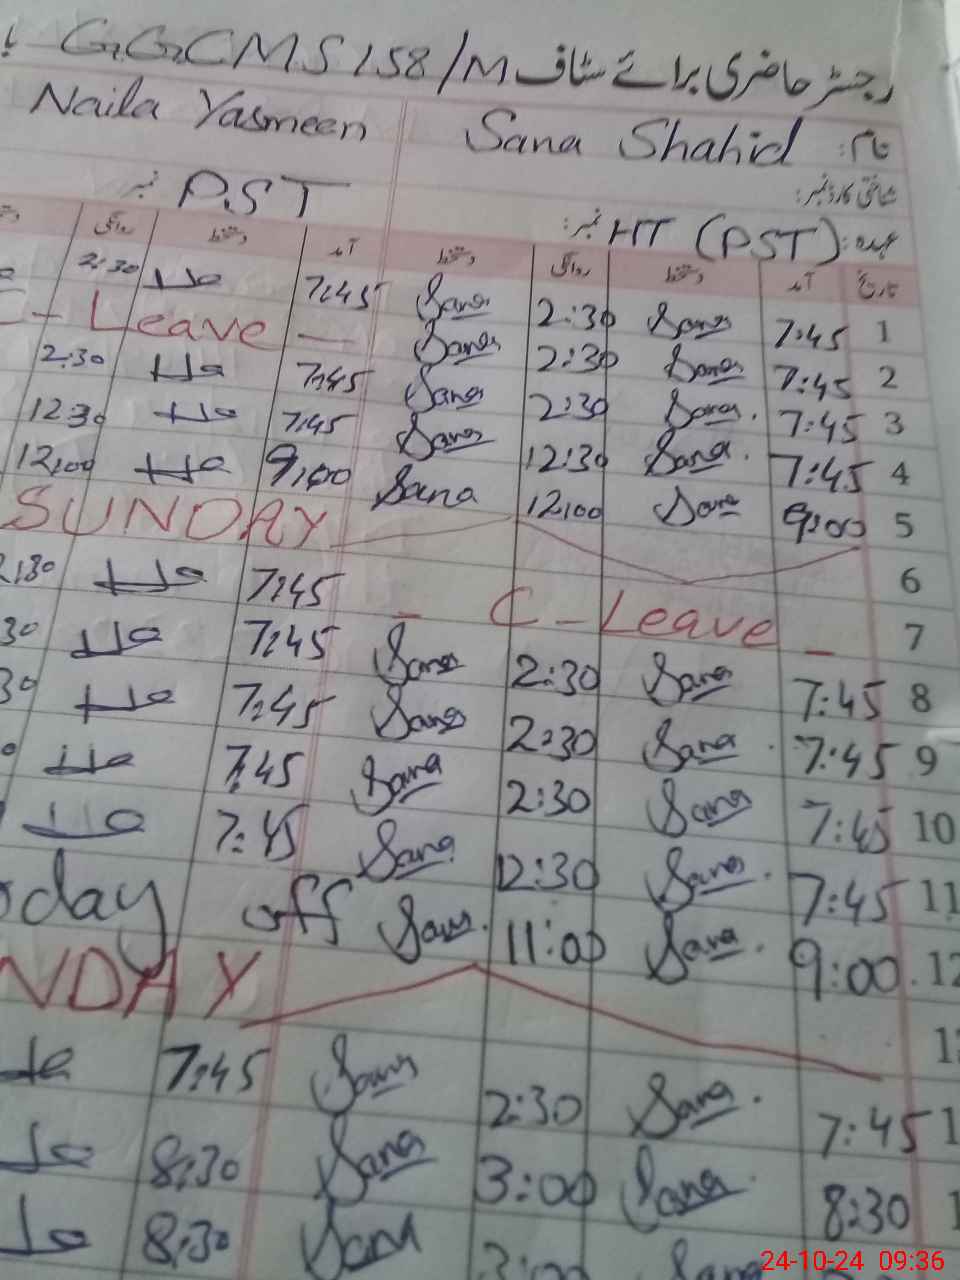 رجسٹر حاضری برائے سٹاف G.G.CMS 158/M
نام: Sana Shahid Naila Yasmeen
شناختی کارڈ نمبر:
عہدہ: HT (PST) نمبر: P.ST نمبر:
تاریخ آمد دستخط روانگی دستخط آمد دستخط روانگی
1 7:45 Sana 2:30 Sana 7:45 2:30
2 7:45 Sana 2:30 Sana - Leave -
3 7:45 Sana. 2:30 Sana 7:45 2:30
4 7:45 Sana. 12:30 Sana 7:45 12:30
5 9:00 Sana 12,00 Sana 9,00 12,00
6 SUNDAY
7 - C - Leave - 7:45
8 7:45 Sana 2:30 Sana 7:45 30
9 7:45 Sana. 2:30 Sana 7:45 30
10 7:45 Sana 2:30 Sana 7:45
11 7:45 Sana. 12:30 Sana 7:45
12 9:00. Sana. 11:00 Sana. off day
NDAY
7:45 Sana. 2:30 Sana 7:45
8:30 Sana 3:00 Sana 8:30
Sana 3:00 Sana 8:30
24-10-24 09:36